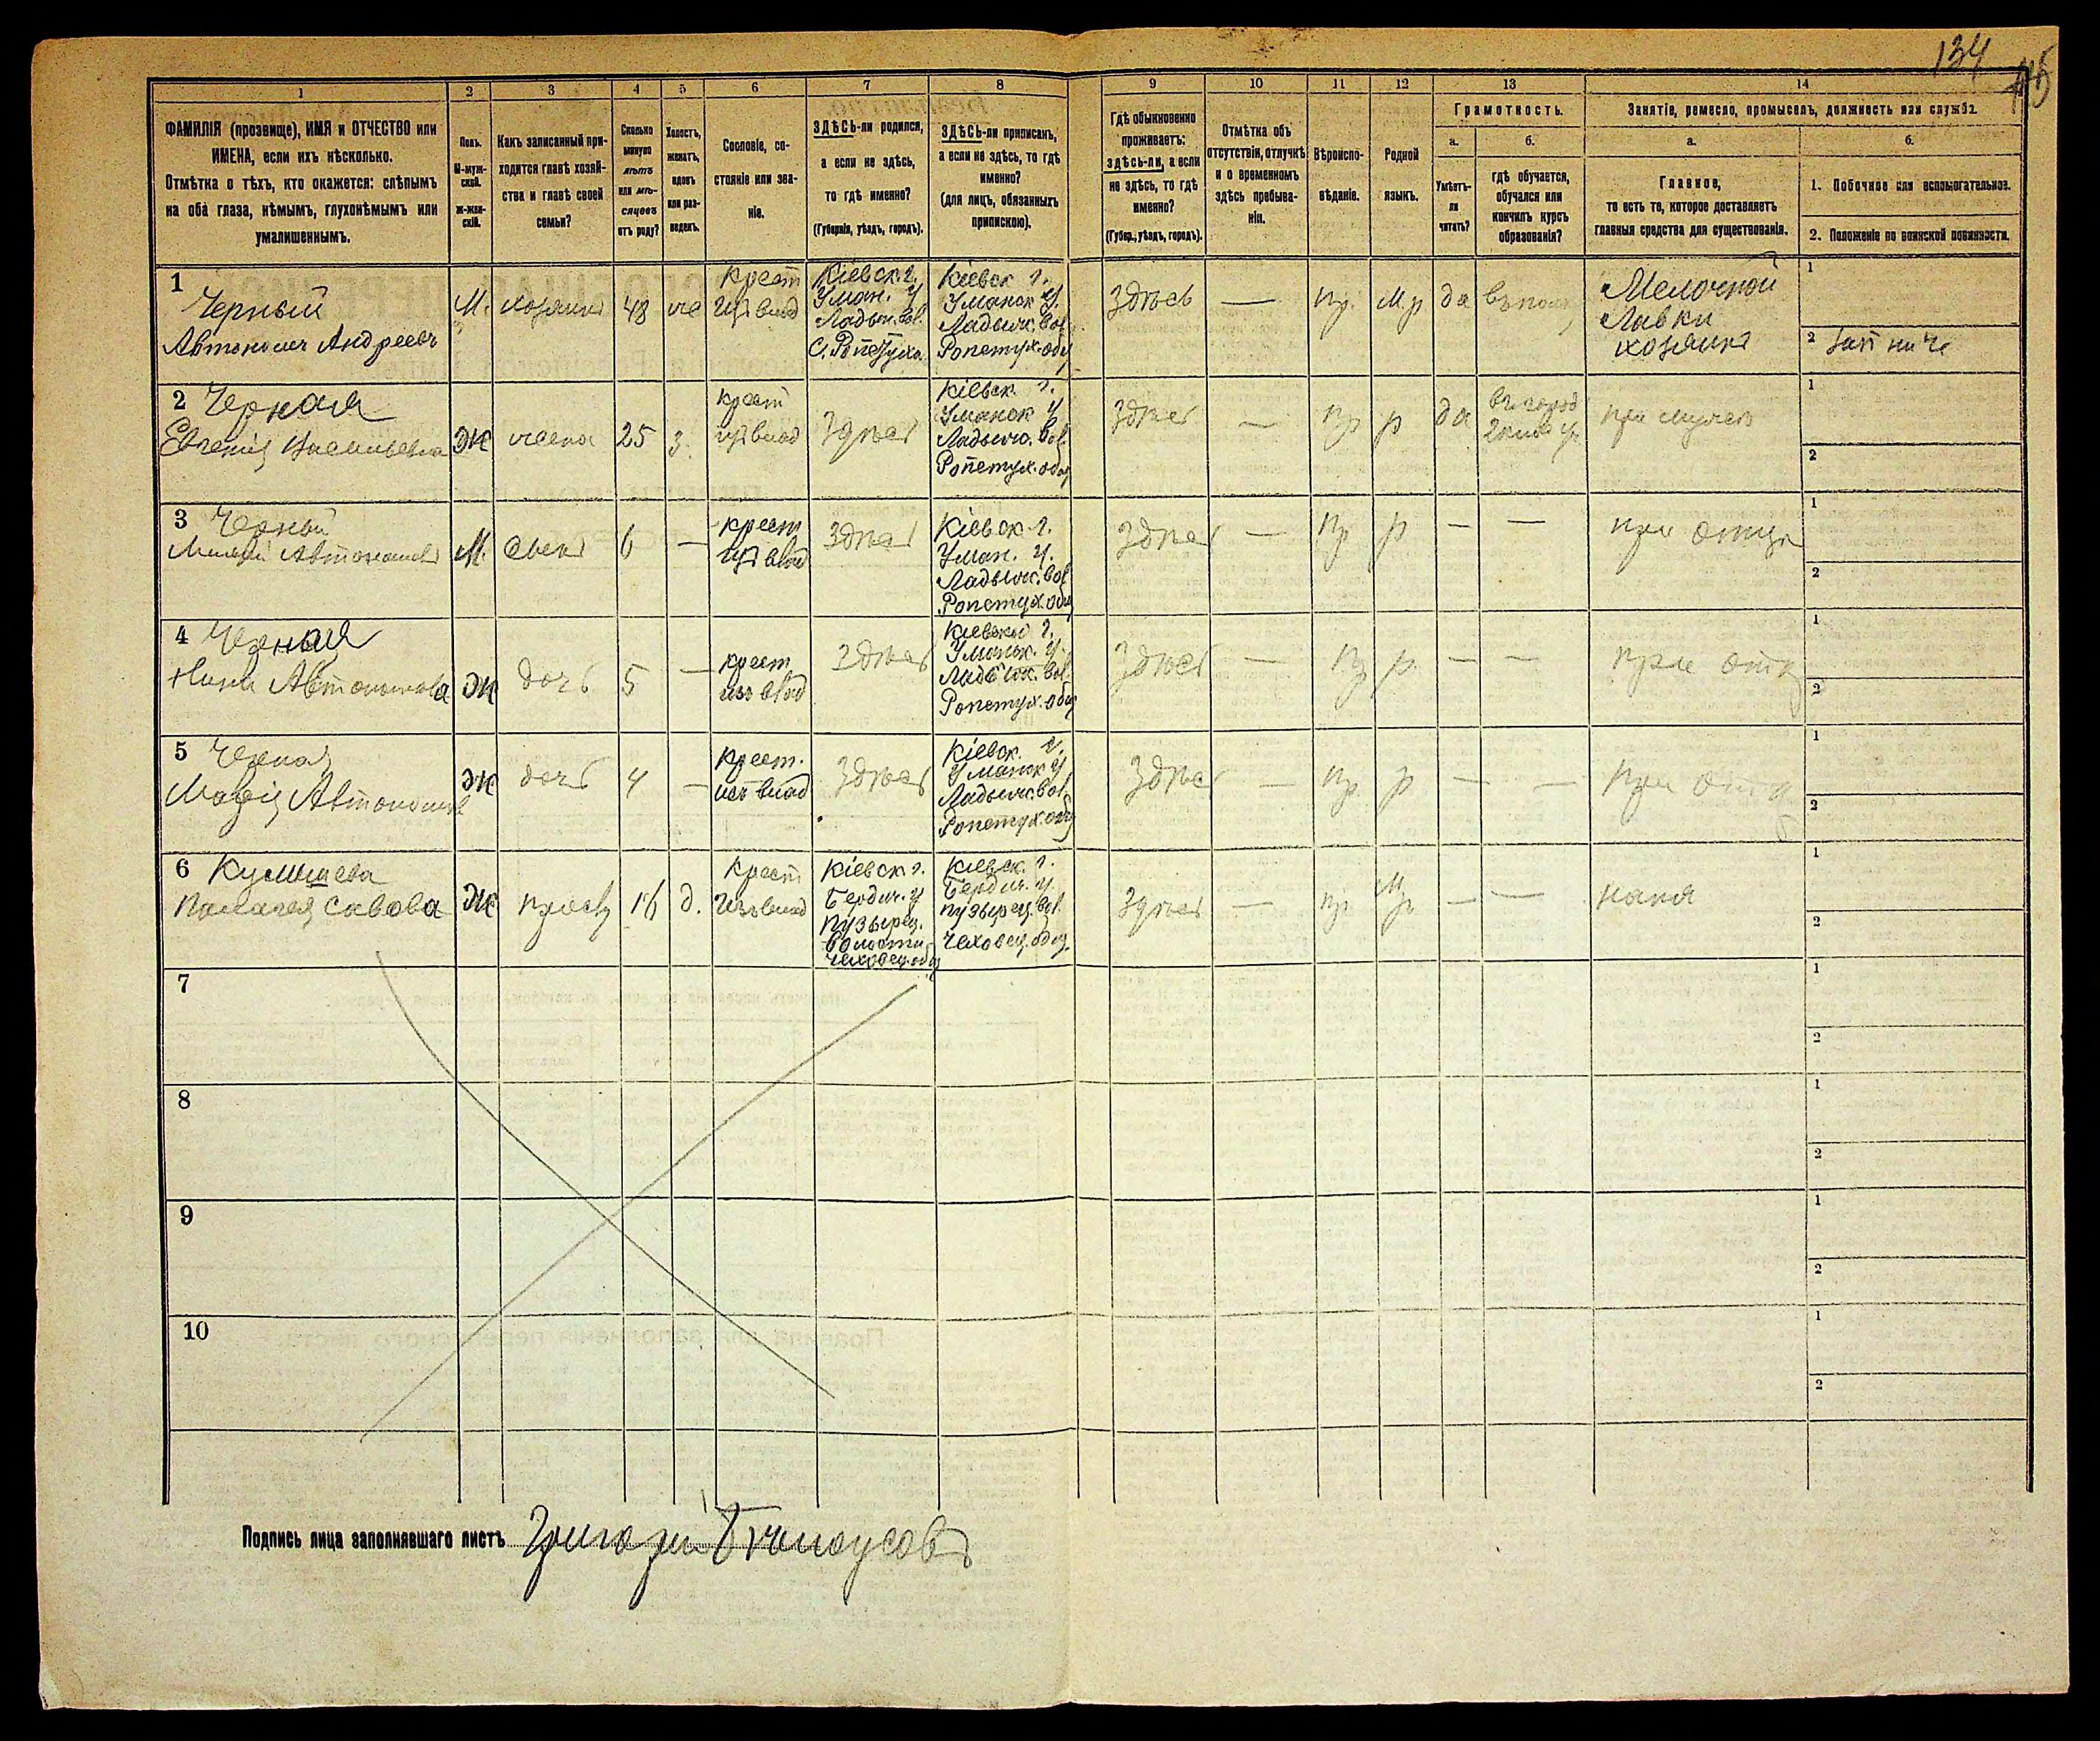 134
1
2
3
4
5
6
7
8
9
10
11
12
13
14
ФАМИЛІЯ (прозвище), ИМЯ и ОТЧЕСТВО или
ИМЕНА, если ихъ нѣсколько.
Отмѣтка о тѣхъ, кто окажется: слѣпымъ
на оба глаза, нѣмымъ, глухонѣмымъ или
умалишеннымъ.
Полъ.
М-муж-
ской.
ж-жен-
скій.
Какъ записанный при-
ходится главѣ хозяй-
ства и главѣ своей
семьи?
Сколько
минуло
лѣтъ
или мѣ-
сяцевъ
отъ роду?
Холостъ,
женатъ,
вдовъ
или раз-
веденъ.
Сословіе, со-
стояніе или зва-
ніе.
ЗДѢСЬ-ли родился,
а если не здѣсь,
то гдѣ именно?
(Губернія, уѣздъ, городъ).
ЗДѢСЬ-ли приписанъ,
а если не здѣсь, то гдѣ
именно?
(для лицъ, обязанныхъ
припискою).
Гдѣ обыкновенно
проживаетъ:
здѣсь-ли, а если
не здѣсь, то гдѣ
именно?
(Губер., уѣздъ, городъ).
Отмѣтка объ
отсутствіи, отлучкѣ
и о временномъ
здѣсь пребыва-
ніи.
Вѣроиспо-
вѣданіе.
Родной
языкъ.
Грамотность.
а.
Умѣетъ-
ли
читать?
б.
гдѣ обучается,
обучался или
кончилъ курсъ
образованія?
Занятіе, ремесло, промыселъ, должность или служба.
а.
Главное,
то есть то, которое доставляетъ
главныя средства для существованія.
б.
1. Побочное или вспомогательное.
2. Положеніе по воинской повинности.
1
Черный
Автономъ Андреевъ
М.
хозяинъ
48
же
Крест
изъ влад
Кіевск. г.
Уман. у
Ладыж. вол.
С. Ропотуха
Кіевск г.
Уманск у.
Ладыж. вол
Ропетух. общ
Здѣсь
—
пр.
М.р
да
Мелочной
Лавки
хозяинъ
1
2
2 Черная
Евгенія Васильевна
Ж
жена
25
з.
крест
изъ влад
Здѣсь
Кіевск. г.
Уманск у
Ладыж. вол.
Ропетух. общ
Здѣсь
—
пр
р
да
въ город
2 клас. уч.
при мужѣ
1
2
3 Черный
Автономовъ
М.
сынъ
6
—
крест
изъ влад
Здѣсь
Кіевск г.
Уман. у.
Ладыж. вол
Ропетух. общ
Здѣсь
—
пр
р
—
—
при отцѣ
1
2
4 Черная
Нина Автономова
Ж
дочь
5
—
крест
изъ влад
Здѣсь
Кіевск г.
Уманск. у.
Ладыж. вол.
Ропетух. общ
Здѣсь
—
пр
р.
—
—
при отц
1
2
5 Черная
Марія Автономов
Ж
дочь
4
—
Крест.
изъ влад
Здѣсь
Кіевск. г.
Уманск у
Ладыж. вол.
Ропетух. общ
Здѣсь
—
пр.
р
—
—
при отц
1
2
6
Пелагея Савова
Ж
присл
16
д.
Крест
Изъ влад
Кіевск г.
Бердич. у
Пузырец.
Волости
Чеховец. общ
Кіевск. г.
Бердич. у.
пузырец. вол.
Чеховец. общ.
Здѣсь
—
пр
М р
—
—
няня
1
2
7
1
2
8
1
2
9
1
2
10
1
2
Подпись лица заполнявшаго листъ Григорій Бѣлоусовъ